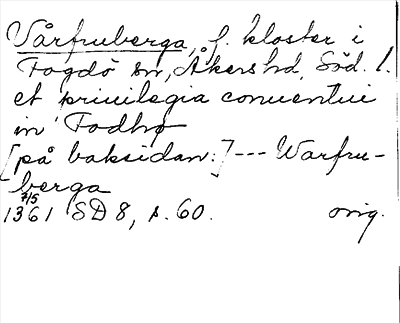 Vårfruberga, f. kloster i
Fogdö sn, Åkers hd, Söd. l.
et priuilegia conuentui
in Fodhø
[på baksidan:] --- Warfru-
berga
7/5
1361 SD 8, s. 60. orig.